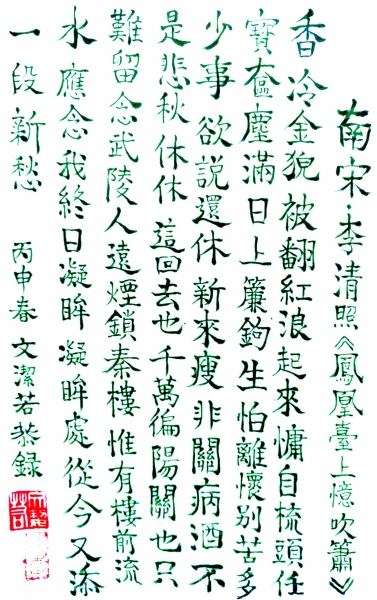 南宋·李清照《鳳凰臺上憶吹簫》
香冷金猊被翻紅浪起來慵自梳頭任
寶奩塵滿日上簾鉤生怕離懷别苦多
少事欲說還休新來瘦非關病酒不
是悲秋休休這回去也千萬徧陽關也只
難留念武陵人遠煙鎖秦樓惟有樓前流
水應念我終日凝眸凝眸處從今又添
一段新愁 丙申春文潔若恭録